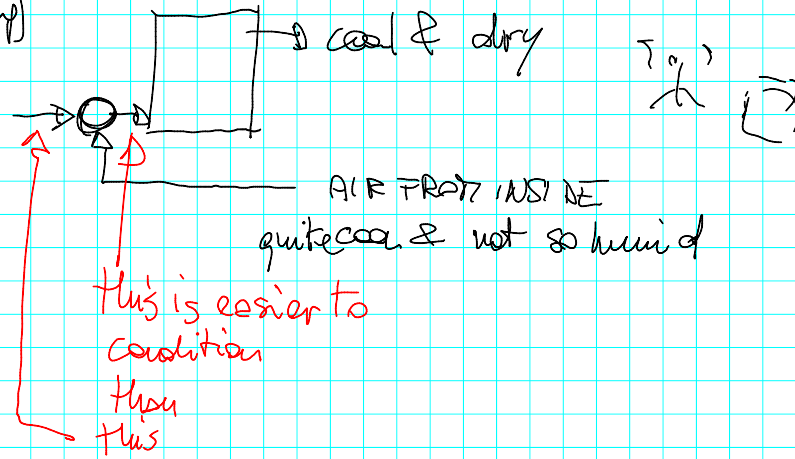 cool & dry
AIR FROM INSIDE
quite cool & not so humid
this is easier to
condition
than
this